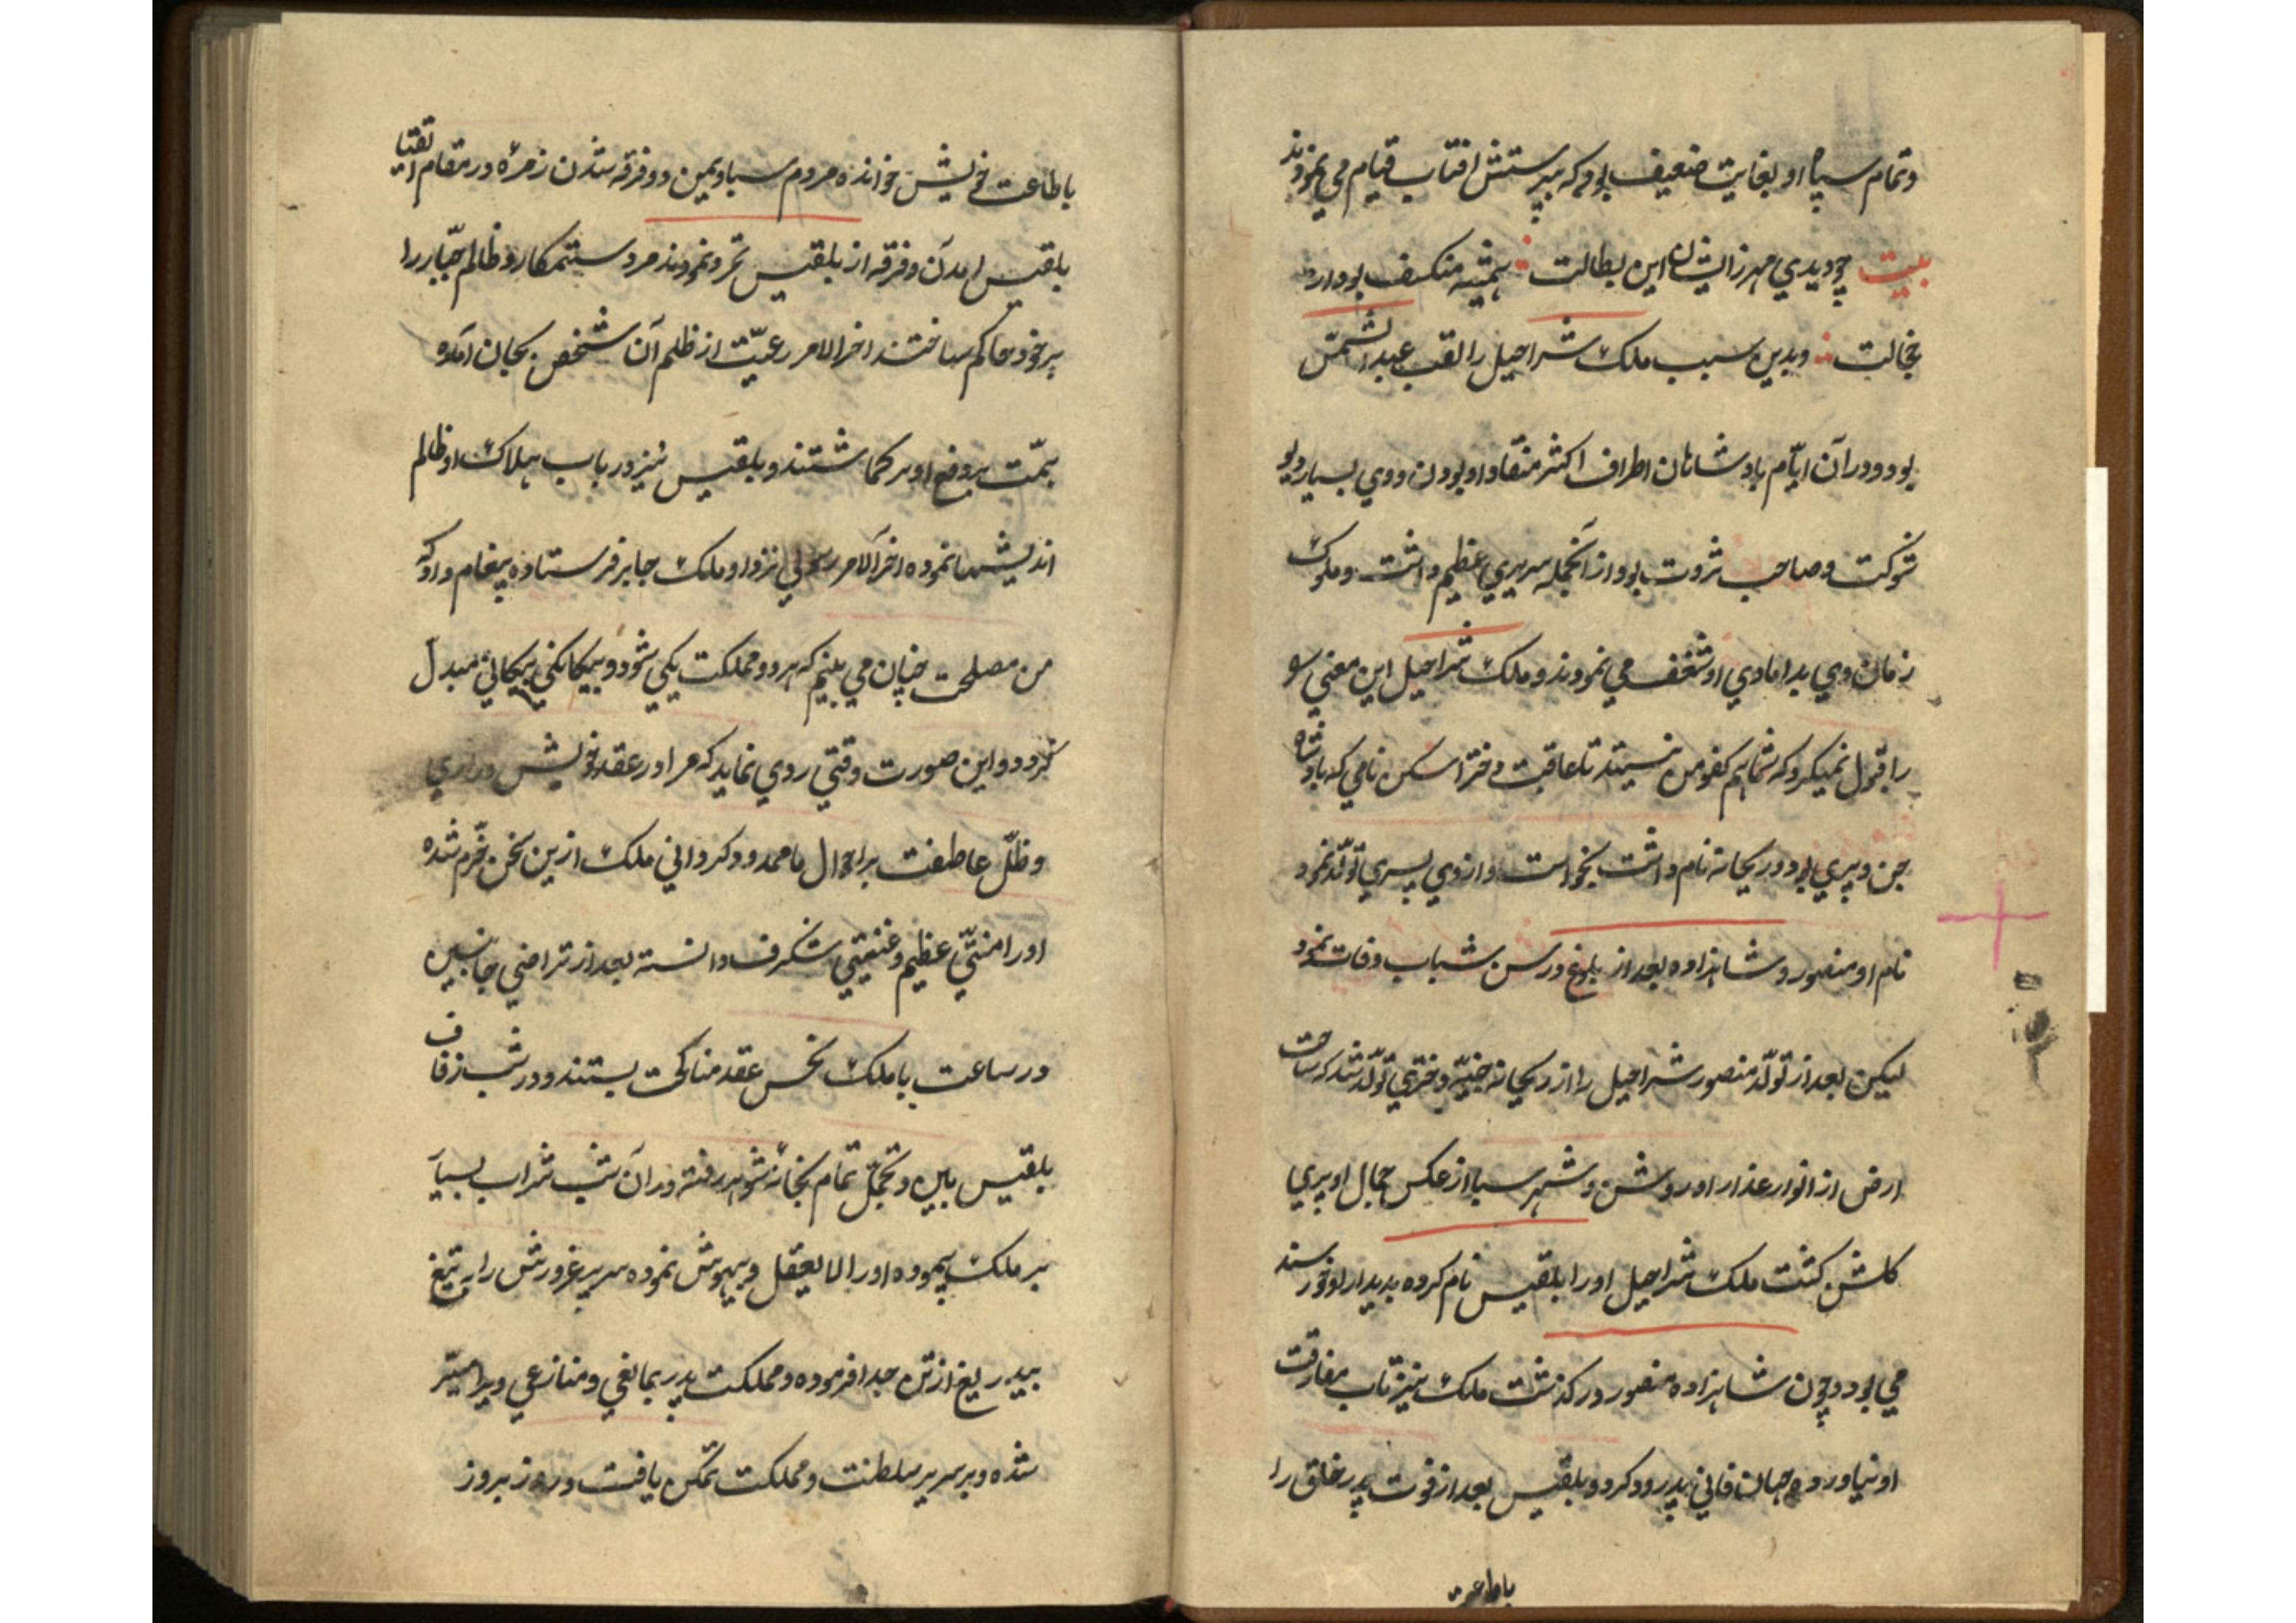 وتمام سپاه او بغایت ضعیف بود که بپرستش افتاب قیام می نمودند
بیت چو دیدي مهر زایشان این بطالت همیشه منکسف بود از
خجالت وبدین سبب ملک شراحیل را لقب عبد الشمس
بود ودر آن ایام پادشاهان اطراف اکثر منقاد او بودن ووي بسیار وبو
شوکت وصاحب ثروت بود از آنجمله سریري عظیم داشت وملوک
زمان وي بدامادي او شغف می نمودند وملک شراحیل این معني
را قبول نمیکرد که شما هم کفو من نیستید تا عاقبت دختر اسکن نامي که پادشاه
جن وپري بود وریحانه نام داشت بخواست وازوي پسري تولد نمود
نام او منصور و شاهزاده بعد از بلوغ در سن شباب وفات نمود
لیکن بعد از تولد منصور شراحیل را از ریحانه جنیه دختري تولد شد که ساحت
ارض از انوار عذار او روشن وشهر سبا از عکس جمال او پري
کلشن کشت ملک شراحیل او را بلقیس نام کرده بدیدار او خورسند
می بود وچون شاهزاده منصور در کذشت ملک نیز تاب مفارقت
او نیاورده جهان فاني پدرود کرد وبلقیس بعد از فوت پدر خلق را
باطاعت
باطاعت خویش خوانده مردم سبا ویمن دو فرقه شدن زمرهٔ در مقام انقیا
بلقیس امدن وفرقه از بلقیس تمرد نمودند مرد ستمکار وظالم جبار را
بر خود حاکم ساختند اخر الامر رعیت از ظلم آن شخص بجان آمده
همت بر دفع او بر کماشتند وبلقیس نیز در باب هلاک او ظالم
اندیشها نموده اخر الامر رسولي نزد او ملک جابر فرستاده پیغام داد که
من مصلحت چنان می بینم که هر دو مملکت یکي شود وبیکانکي بیکانکي مبدل
کردد واین صورت وقتي روي نماید که مرا در عقد خویش در اري
وظل عاطفت بر احوال ما ممدود کرداني ملک ازین سخن خرم شده
او را منتي عظیم وغنیمتي شکرف دانسته بعد از تراضي جانبین
در ساعت با ملک نحس عقد مناکحت بستند ودر شب زفاف
بلقیس باین وتجمل تمام بخانهٔ شوهر رفته ودر آن شب شراب بسیار
بر ملک پیموده او را لا یعقل وبیهوش نموده سر پر غرورش را به تیغ
بیدریغ از تن جدا فرموده ومملکت پدر بمانعي ومنازعي ویرا میسر
شده وبر سریر سلطنت ومملکت تمکن یافت وروز بروز